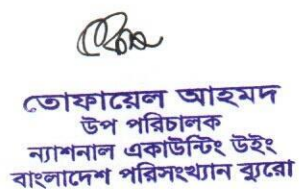 তোফায়েল আহমদ
উপ পরিচালক
ন্যাশনাল একাউন্টিং উইং
বাংলাদেশ পরিসংখ্যান ব্যুরো